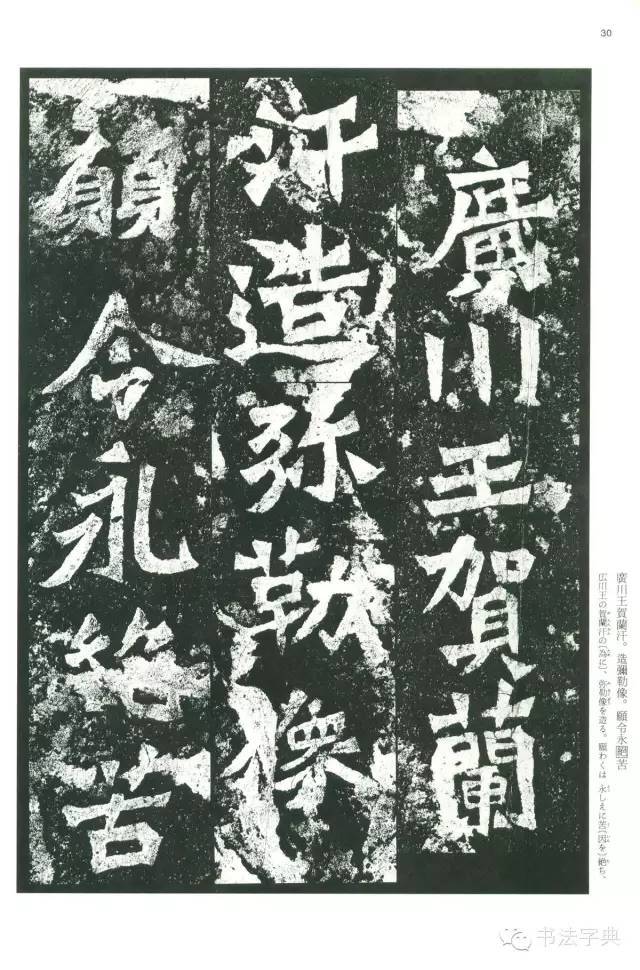 30
廣川王賀蘭
汗造弥勒像
願令永絕苦
廣川王賀蘭汗。造彌勒像。願令永絕苦
広川王の賀蘭汗の〔為に〕、弥勒像を造る。願わくは、永しえに苦〔因を〕絶ち、
书法字典